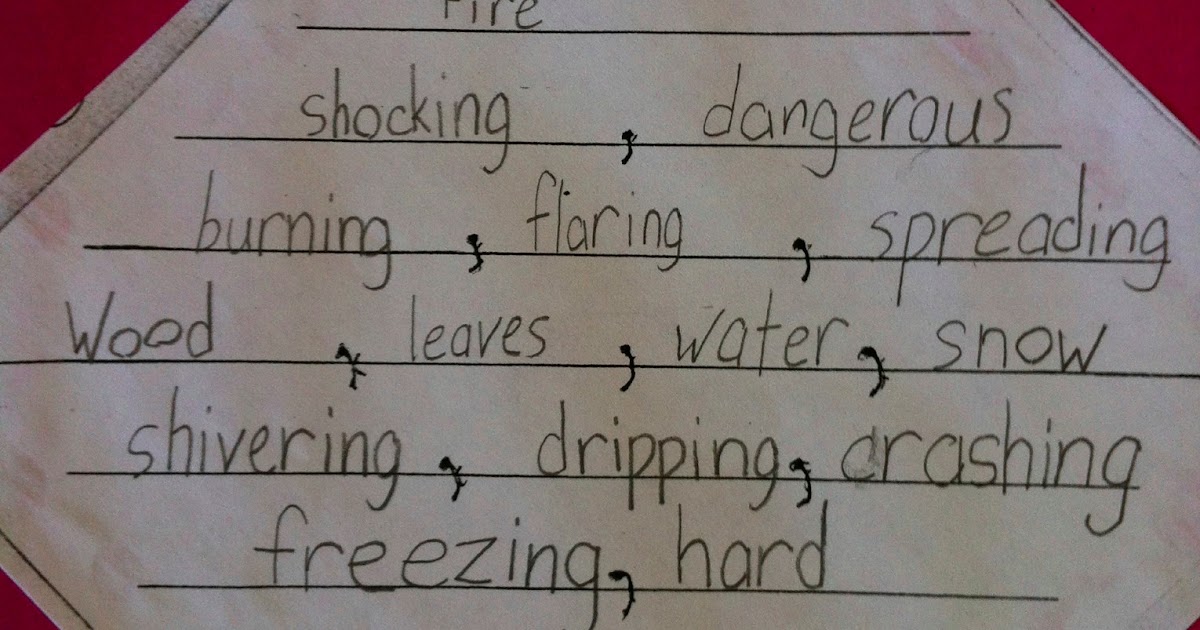 Fire
shocking, dangerous
burning, flaring, spreading
Wood, leaves, water, snow
shivering, dripping, crashing
freezing, hard